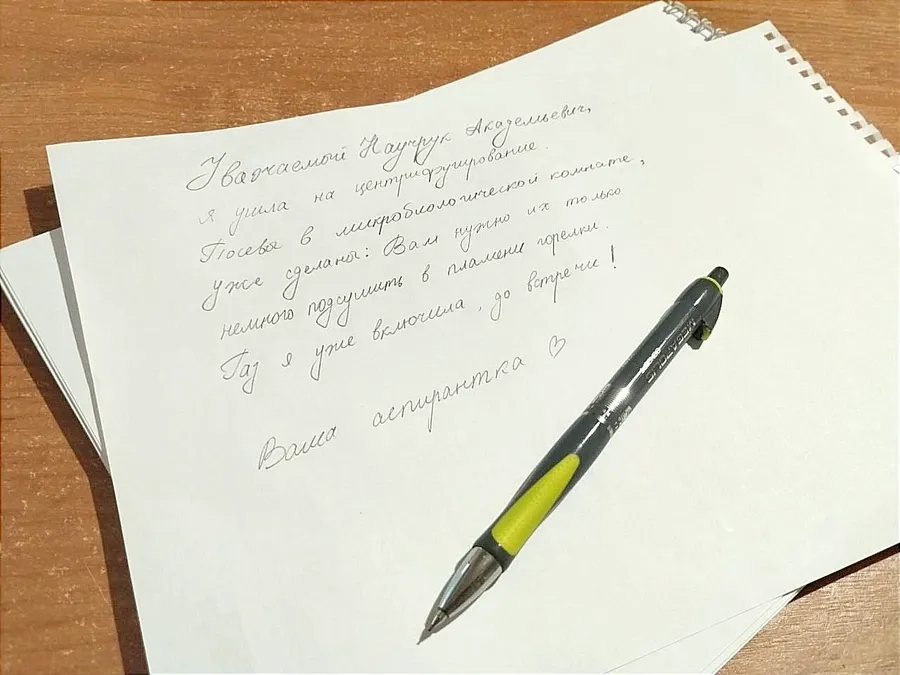 Уважаемый Научрук Академьевич,
я ушла на центрифугирование.
Посевы в микробиологической комнате,
уже сделаны: Вам нужно их только
немного подсушить в пламени горелки.
Газ я уже включила, до встречи!
Ваша аспирантка ♡
MEGAPOLIS